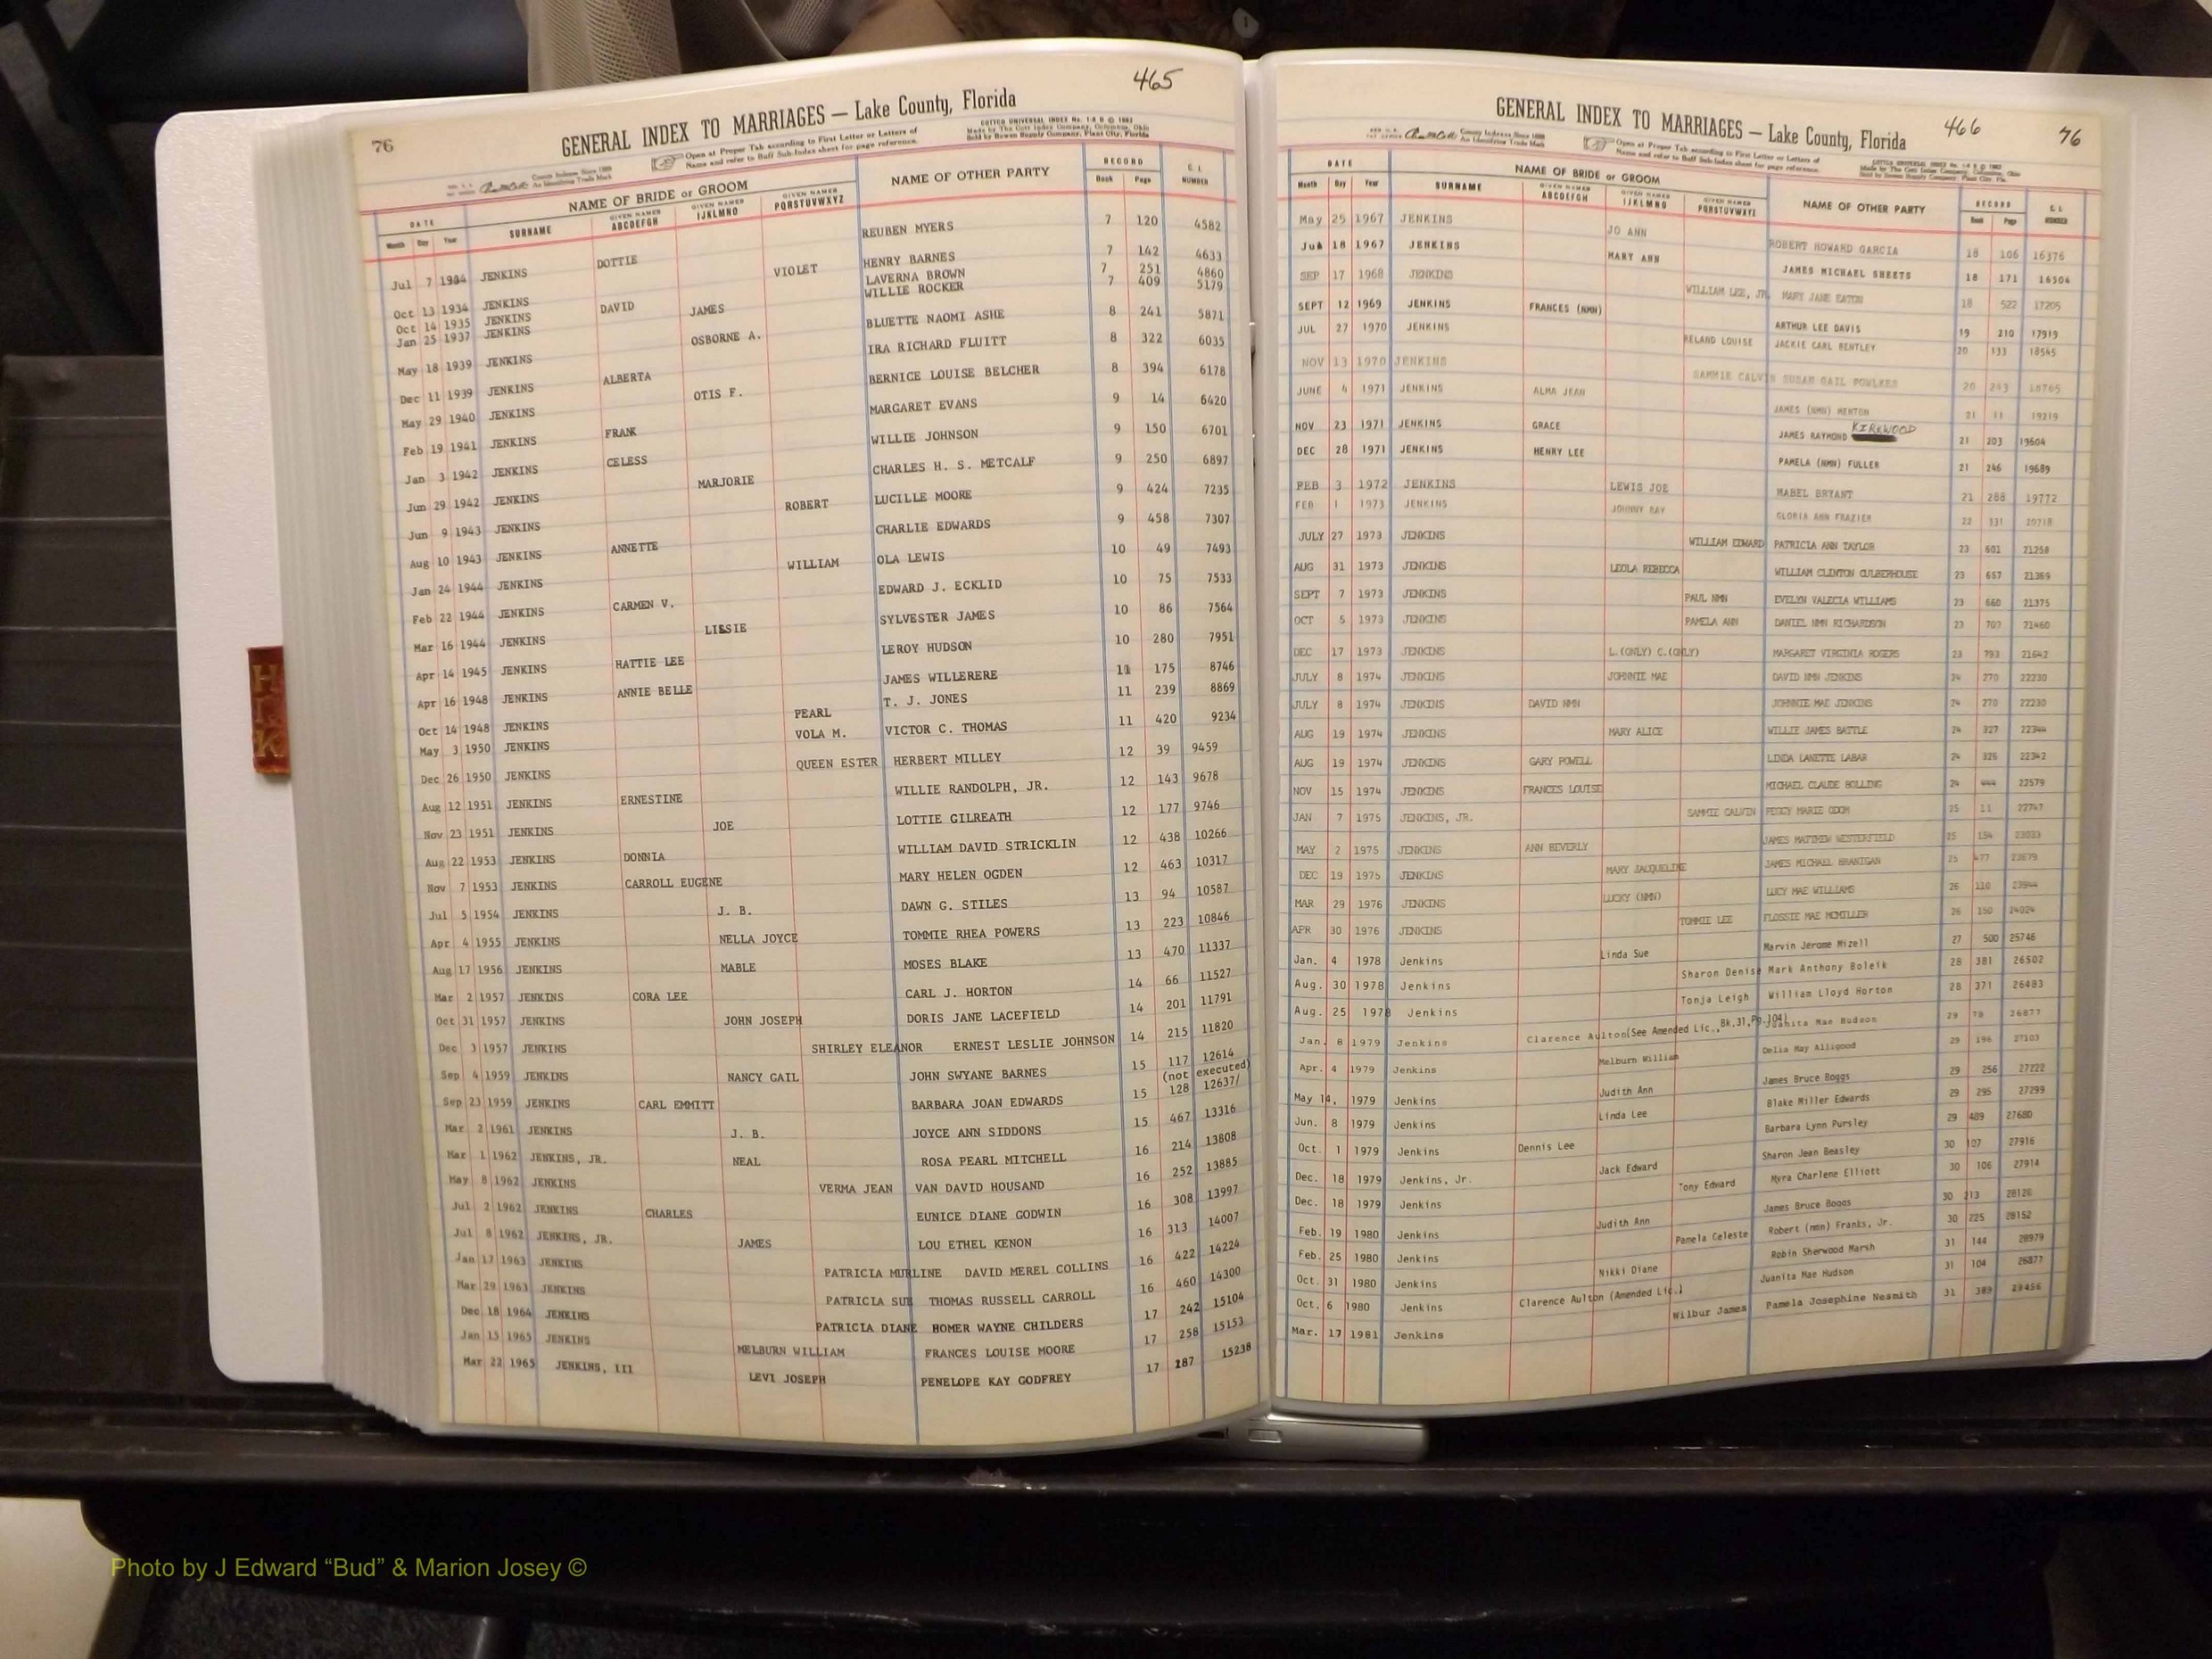 465
76
GENERAL INDEX TO MARRIAGES — Lake County, Florida
COTTCO UNIVERSAL INDEX No. 1-8 B © 1963
Made by The Cott Index Company, Columbus, Ohio
Sold by Bowen Supply Company, Plant City, Florida
County Indexes Since 1888
An Identifying Trade Mark
Open at Proper Tab according to First Letter or Letters of
Name and refer to Buff Sub-Index sheet for page reference.
DATE NAME OF BRIDE or GROOM NAME OF OTHER PARTY RECORD
Month Day Year SURNAME GIVEN NAMES ABCDEFGH GIVEN NAMES IJKLMNO GIVEN NAMES PQRSTUVWXYZ Book Page NUMBER
Jul 7 1934 JENKINS DOTTIE REUBEN MYERS 7 120 4582
Oct 13 1934 JENKINS VIOLET HENRY BARNES 7 142 4633
Oct 14 1935 JENKINS DAVID LAVERNA BROWN 7 251 4860
Jan 25 1937 JENKINS JAMES WILLIE ROCKER 7 409 5179
May 18 1939 JENKINS OSBORNE A. BLUETTE NAOMI ASHE 8 241 5871
Dec 11 1939 JENKINS ALBERTA IRA RICHARD FLUITT 8 322 6035
May 29 1940 JENKINS OTIS F. BERNICE LOUISE BELCHER 8 394 6178
Feb 19 1941 JENKINS FRANK MARGARET EVANS 9 14 6420
Jan 3 1942 JENKINS CELESS WILLIE JOHNSON 9 150 6701
Jun 29 1942 JENKINS MARJORIE CHARLES H. S. METCALF 9 250 6897
Jun 9 1943 JENKINS ROBERT LUCILLE MOORE 9 424 7235
Aug 10 1943 JENKINS ANNETTE CHARLIE EDWARDS 9 458 7307
Jan 24 1944 JENKINS WILLIAM OLA LEWIS 10 49 7493
Feb 22 1944 JENKINS CARMEN V. EDWARD J. ECKLID 10 75 7533
Mar 16 1944 JENKINS LISSIE SYLVESTER JAMES 10 86 7564
Apr 14 1945 JENKINS HATTIE LEE LEROY HUDSON 10 280 7951
Apr 16 1948 JENKINS ANNIE BELLE JAMES WILLERERE 11 175 8746
Oct 14 1948 JENKINS PEARL T. J. JONES 11 239 8869
May 3 1950 JENKINS VOLA M. VICTOR C. THOMAS 11 420 9234
Dec 26 1950 JENKINS QUEEN ESTER HERBERT MILLEY 12 39 9459
Aug 12 1951 JENKINS ERNESTINE WILLIE RANDOLPH, JR. 12 143 9678
Nov 23 1951 JENKINS JOE LOTTIE GILREATH 12 177 9746
Aug 22 1953 JENKINS DONNIA WILLIAM DAVID STRICKLIN 12 438 10266
Nov 7 1953 JENKINS CARROLL EUGENE MARY HELEN OGDEN 12 463 10317
Jul 5 1954 JENKINS J. B. DAWN G. STILES 13 94 10587
Apr 4 1955 JENKINS NELLA JOYCE TOMMIE RHEA POWERS 13 223 10846
Aug 17 1956 JENKINS MABLE MOSES BLAKE 13 470 11337
Mar 2 1957 JENKINS CORA LEE CARL J. HORTON 14 66 11527
Oct 31 1957 JENKINS JOHN JOSEPH DORIS JANE LACEFIELD 14 201 11791
Dec 3 1957 JENKINS SHIRLEY ELEANOR ERNEST LESLIE JOHNSON 14 215 11820
Sep 4 1959 JENKINS NANCY GAIL JOHN SWYANE BARNES 15 117 12614
(not executed)
Sep 23 1959 JENKINS CARL EMMITT BARBARA JOAN EDWARDS 15 128 12637/
Mar 2 1961 JENKINS J. B. JOYCE ANN SIDDONS 15 467 13316
Mar 1 1962 JENKINS, JR. NEAL ROSA PEARL MITCHELL 16 214 13808
May 8 1962 JENKINS VERMA JEAN VAN DAVID HOUSAND 16 252 13885
Jul 2 1962 JENKINS CHARLES EUNICE DIANE GODWIN 16 308 13997
Jul 8 1962 JENKINS, JR. JAMES LOU ETHEL KENON 16 313 14007
Jan 17 1963 JENKINS PATRICIA MURLINE DAVID MEREL COLLINS 16 422 14224
Mar 29 1963 JENKINS PATRICIA SUE THOMAS RUSSELL CARROLL 16 460 14300
Dec 18 1964 JENKINS PATRICIA DIANE HOMER WAYNE CHILDERS 17 242 15104
Jan 15 1965 JENKINS MELBURN WILLIAM FRANCES LOUISE MOORE 17 258 15153
Mar 22 1965 JENKINS, III LEVI JOSEPH PENELOPE KAY GODFREY 17 287 15238
466 76
GENERAL INDEX TO MARRIAGES — Lake County, Florida
County Indexes Since 1888
An Identifying Trade Mark
Open at Proper Tab according to First Letter or Letters of
Name and refer to Buff Sub-Index sheet for page reference.
DATE NAME OF BRIDE or GROOM NAME OF OTHER PARTY RECORD
Month Day Year SURNAME GIVEN NAMES ABCDEFGH GIVEN NAMES IJKLMNO GIVEN NAMES PQRSTUVWXYZ Book Page NUMBER
May 25 1967 JENKINS JO ANN ROBERT HOWARD GARCIA 18 106 16376
18 1967 JENKINS MARY ANN JAMES MICHAEL SHEETS 18 171 16504
SEP 17 1968 JENKINS WILLIAM LEE, JR. MARY JANE EATON 18 522 17205
SEPT 12 1969 JENKINS FRANCES (NMN) ARTHUR LEE DAVIS 19 210 17919
JUL 27 1970 JENKINS RELAND LOUISE JACKIE CARL BENTLEY 20 133 18545
NOV 13 1970 JENKINS SAMMIE CALVIN SUSAN GAIL FOWLKES 20 243 18765
JUNE 4 1971 JENKINS ALMA JEAN JAMES (NMN) MENTON 21 11 19219
NOV 23 1971 JENKINS GRACE JAMES RAYMOND KIRKWOOD 21 203 19604
DEC 28 1971 JENKINS HENRY LEE PAMELA (NMN) FULLER 21 246 19689
FEB 3 1972 JENKINS LEWIS JOE MABEL BRYANT 21 288 19772
FEB 1 1973 JENKINS JOHNNY RAY GLORIA ANN FRAZIER 22 531 20718
JULY 27 1973 JENKINS WILLIAM EDWARD PATRICIA ANN TAYLOR 23 601 21258
AUG 31 1973 JENKINS LEOLA REBECCA WILLIAM CLINTON CULBERHOUSE 23 657 21369
SEPT 7 1973 JENKINS PAUL NMN EVELYN VALECIA WILLIAMS 23 660 21375
OCT 5 1973 JENKINS PAMELA ANN DANIEL NMN RICHARDSON 23 707 21460
DEC 17 1973 JENKINS L.(ONLY) C.(ONLY) MARGARET VIRGINIA ROGERS 23 793 21642
JULY 8 1974 JENKINS JOHNNIE MAE DAVID NMN JENKINS 24 270 22230
JULY 8 1974 JENKINS DAVID NMN JOHNNIE MAE JENKINS 24 270 22230
AUG 19 1974 JENKINS MARY ALICE WILLIE JAMES BATTLE 24 327 22344
AUG 19 1974 JENKINS GARY POWELL LINDA LANETTE LABAR 24 326 22342
NOV 15 1974 JENKINS FRANCES LOUISE MICHAEL CLAUDE BOLLING 24 444 22579
JAN 7 1975 JENKINS, JR. SAMMIE CALVIN PEGGY MARIE ODOM 25 11 22747
MAY 2 1975 JENKINS ANN BEVERLY JAMES MATTHEW WESTERFIELD 25 154 23033
DEC 19 1975 JENKINS MARY JACQUELINE JAMES MICHAEL BRANIGAN 25 477 23679
MAR 29 1976 JENKINS LUCKY (NMN) LUCY MAE WILLIAMS 26 110 23944
APR 30 1976 JENKINS TOMMIE LEE FLOSSIE MAE MCMILLER 26 150 24024
Jan. 4 1978 Jenkins Linda Sue Marvin Jerome Mizell 27 500 25746
Aug. 30 1978 Jenkins Sharon Denise Mark Anthony Boleik 28 381 26502
Aug. 25 1978 Jenkins Tonja Leigh William Lloyd Horton 28 371 26483
Jan. 8 1979 Jenkins Clarence Aulton(See Amended Lic.,Bk.31,Pg.104) Juanita Mae Hudson 29 78 26877
Apr. 4 1979 Jenkins Melburn William Delia May Alligood 29 196 27103
May 14, 1979 Jenkins Judith Ann James Bruce Boggs 29 256 27222
Jun. 8 1979 Jenkins Linda Lee Blake Miller Edwards 29 295 27299
Oct. 1 1979 Jenkins Dennis Lee Barbara Lynn Pursley 29 489 27680
Dec. 18 1979 Jenkins, Jr. Jack Edward Sharon Jean Beasley 30 107 27916
Dec. 18 1979 Jenkins Tony Edward Myra Charlene Elliott 30 106 27914
Feb. 19 1980 Jenkins Judith Ann James Bruce Boggs 30 213 28126
Feb. 25 1980 Jenkins Pamela Celeste Robert (nmn) Franks, Jr. 30 225 28152
Oct. 31 1980 Jenkins Nikki Diane Robin Sherwood Marsh 31 144 28979
Oct. 6 1980 Jenkins Clarence Aulton (Amended Lic.) Juanita Mae Hudson 31 104 26877
Mar. 17 1981 Jenkins Wilbur James Pamela Josephine Nesmith 31 383 29456
H
I
K
Photo by J Edward “Bud” & Marion Josey ©